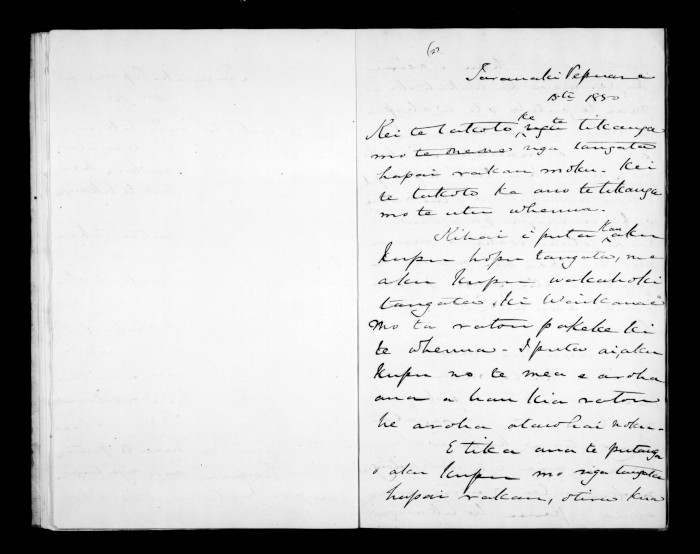 Taranaki Pepuare
18th 1850
Kei te takoto ke te tikanga
mo te mone nga tangata
hapai rakau moku. Kei
te takoto ka ano te tikanga
mo te utu whenua.
Kihai i puta kau aku
kupu hopu tangata, me
aku kupu wakahoki
tangata, ki Waikanae
mo ta ratou pakeke ki
te whenua. I puta ai, aku
kupu no te mea e aroha
ana a hau kia ratou
he aroha atawhai noku.
E tika ana te putanga
o aku kupu mo nga tangata
hapai rakau, otira kua